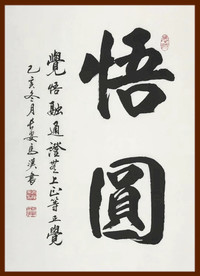 悟圓
覺悟融通證無上正等正覺
己亥冬月長安書